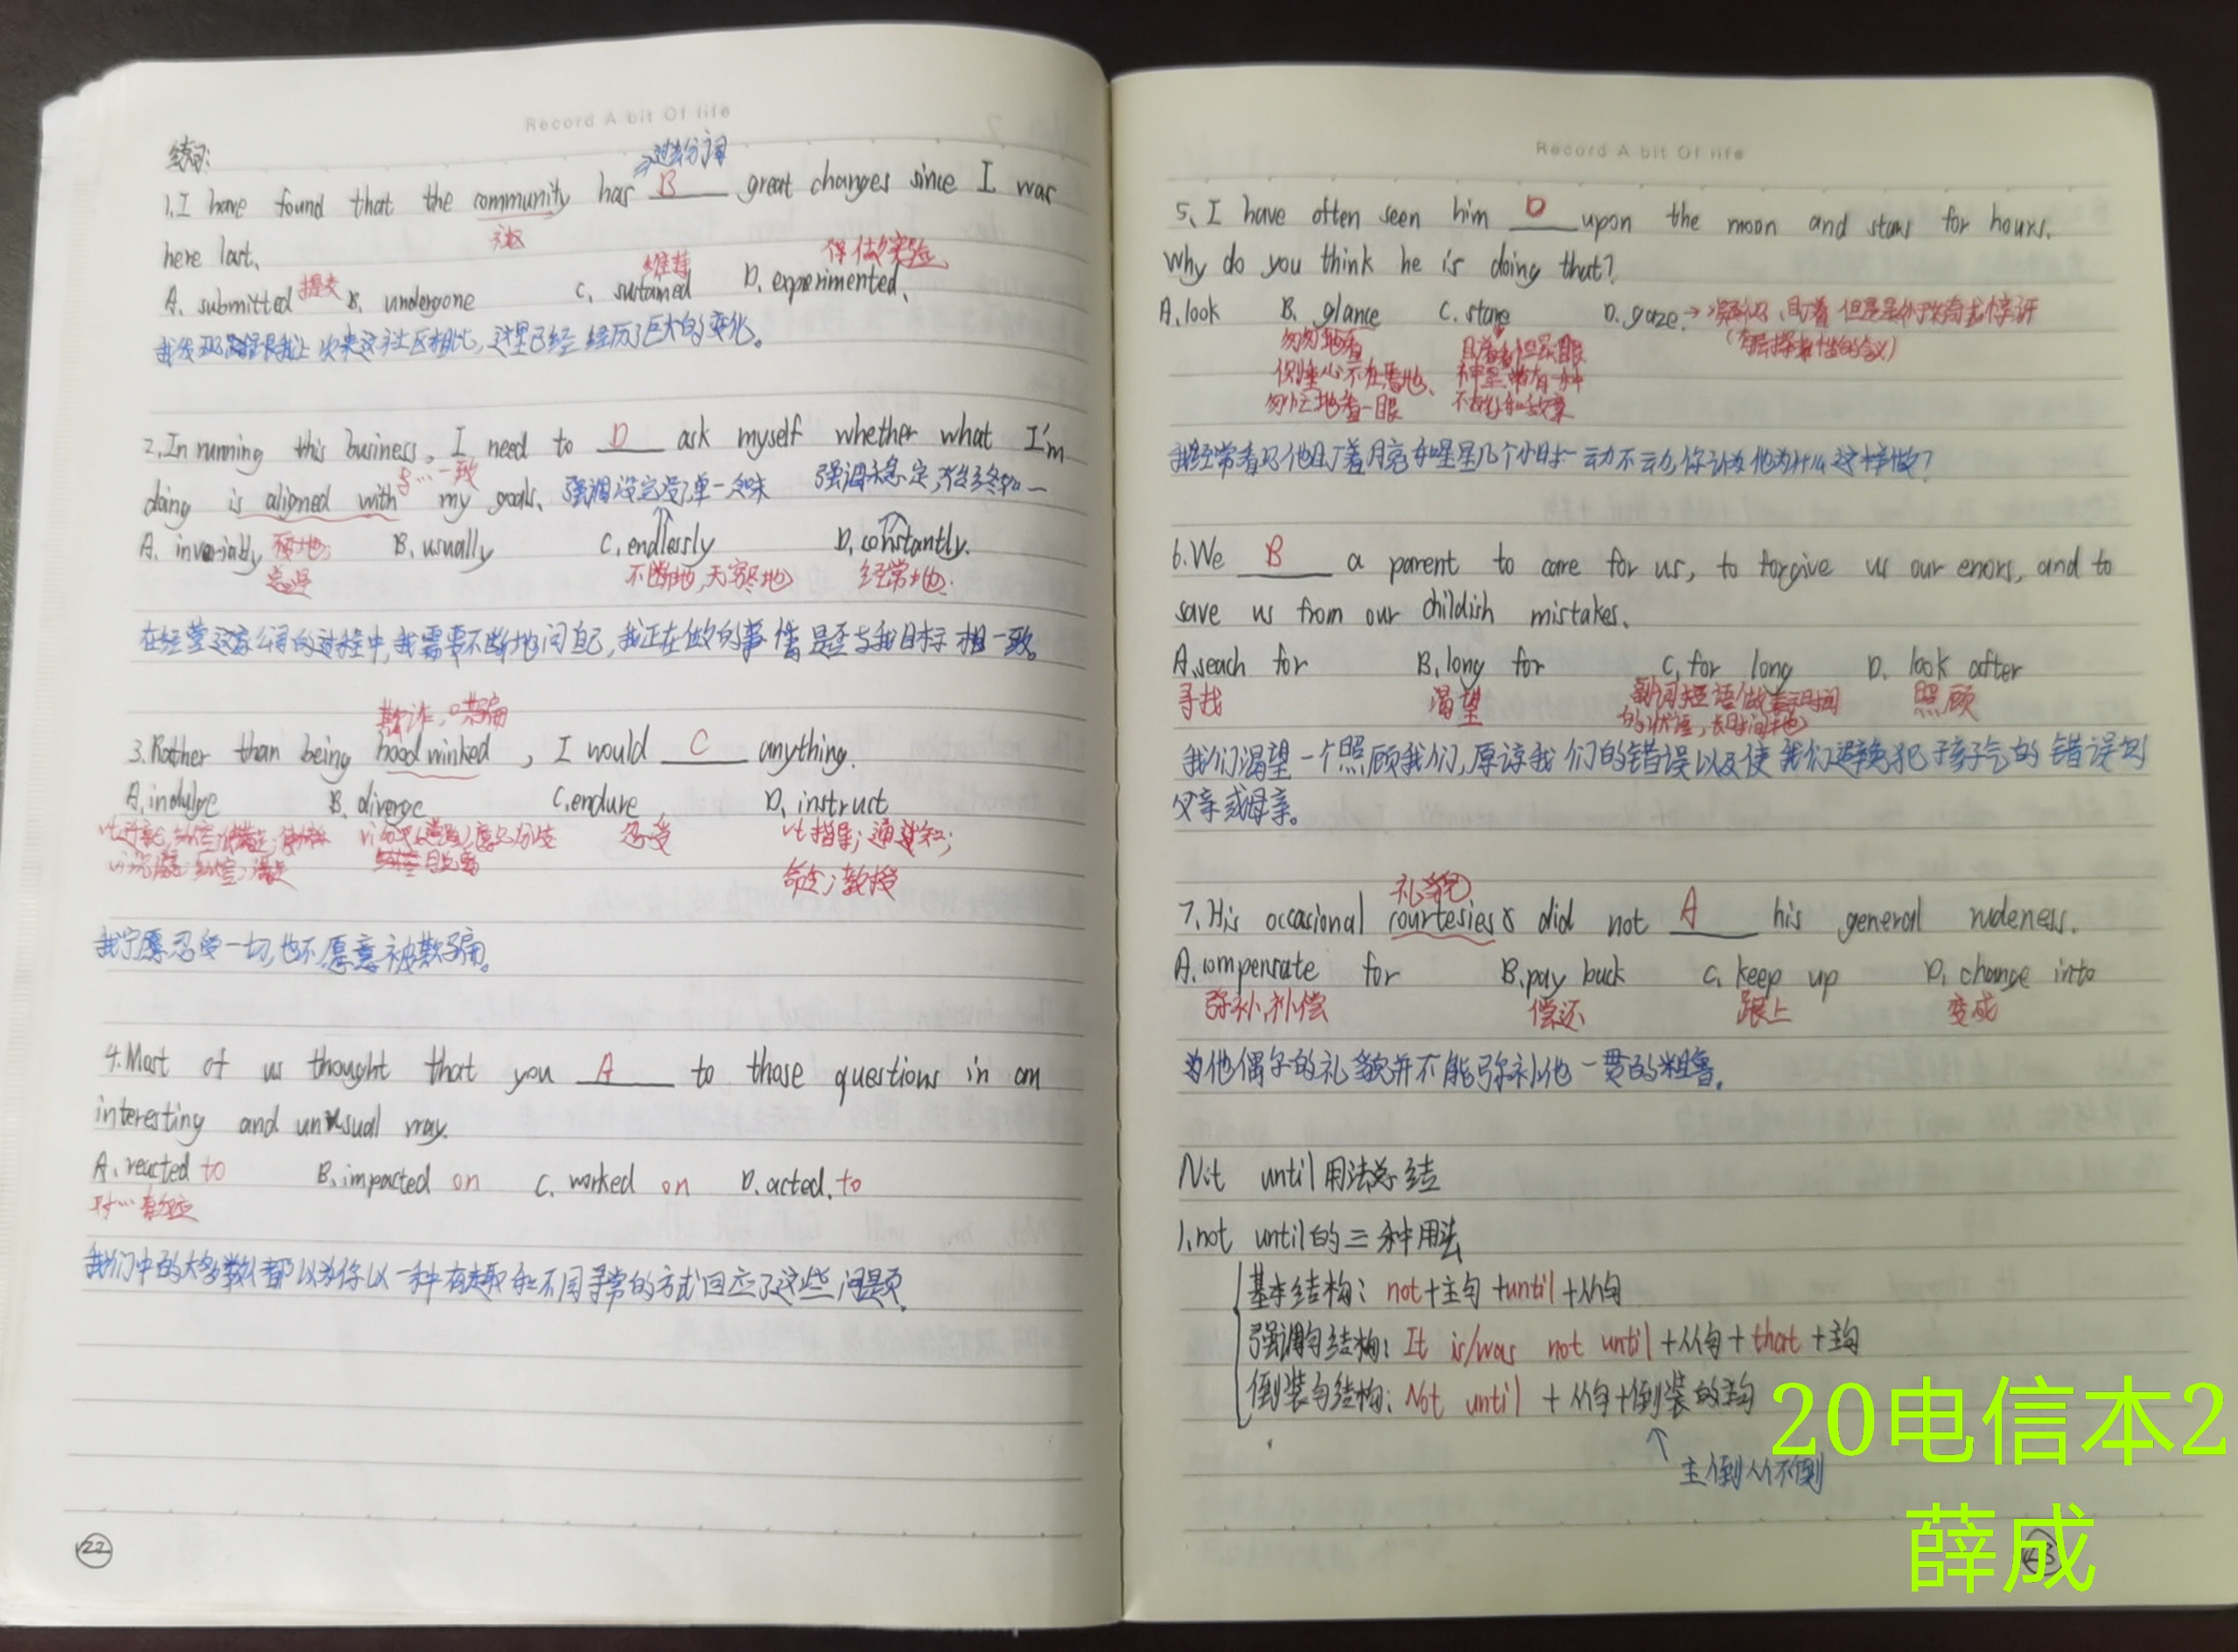 Record A bit Of life
练习:
⇒过去分词
1.I have found that the community has B great changes since I was
社区
here last.
A. submitted 提交 B. undergone C. sustained 维持 D. experimented. 做实验
我发现跟我上次来这社区相比,这里已经经历了巨大的变化。
2.In running this business, I need to D ask myself whether what I'm
与…一致
doing is aligned with my goals.
强调没完没了,单一乏味 强调稳定,始终如一
A. invariably 总是 B. usually C. endlessly D. constantly.
不断地,无穷尽地 经常地.
在经营这家公司的过程中,我需要不断地问自己,我正在做的事情是否与我目标相一致。
欺诈,哄骗
3.Rather than being hoodwinked , I would C anything.
A. indulge B. diverge C. endure D. instruct
忍受 vt指导;通知;
命令;教授
我宁愿忍受一切,也不愿意被欺骗。
4.Most of us thought that you A to those questions in an
interesting and unusual way.
A. reacted to B. impacted on C. worked on D. acted. to
对…有反应
我们中的大多数人都以为你以一种有趣和不同寻常的方式回应了这些问题.
22
Record A bit Of life
5、I have often seen him D upon the moon and stars for hours.
Why do you think he is doing that?
A. look B. glance C. stare D. gaze. →凝视,盯着 但是是出于好奇或惊讶
匆匆地看
侧重心不在焉地、
匆忙地看一眼
我经常看见他盯着月亮和星星几个小时一动不动,你认为他为什么这样做?
6.We B a parent to care for us, to forgive us our errors, and to
save us from our childish mistakes.
A. seach for B. long for C. for long D. look after
寻找 渴望 副词短语做表示时间 照顾
的状语,长时间地
我们渴望一个照顾我们,原谅我们的错误以及使我们避免犯孩子气的错误的
父亲或母亲。
礼貌
7.His occasional courtesies did not A his general rudeness.
A. compensate for B. pay back C. keep up D. change into
弥补,补偿 偿还 跟上 变成
他偶尔的礼貌并不能弥补他一贯的粗鲁.
Not until用法总结
1.not until的三种用法
基本结构: not+主句+until+从句
强调句结构: It is/was not until+从句+that+主句
倒装句结构: Not until +从句+倒装的主句
↑
主倒从不倒
20电信本2
薛成